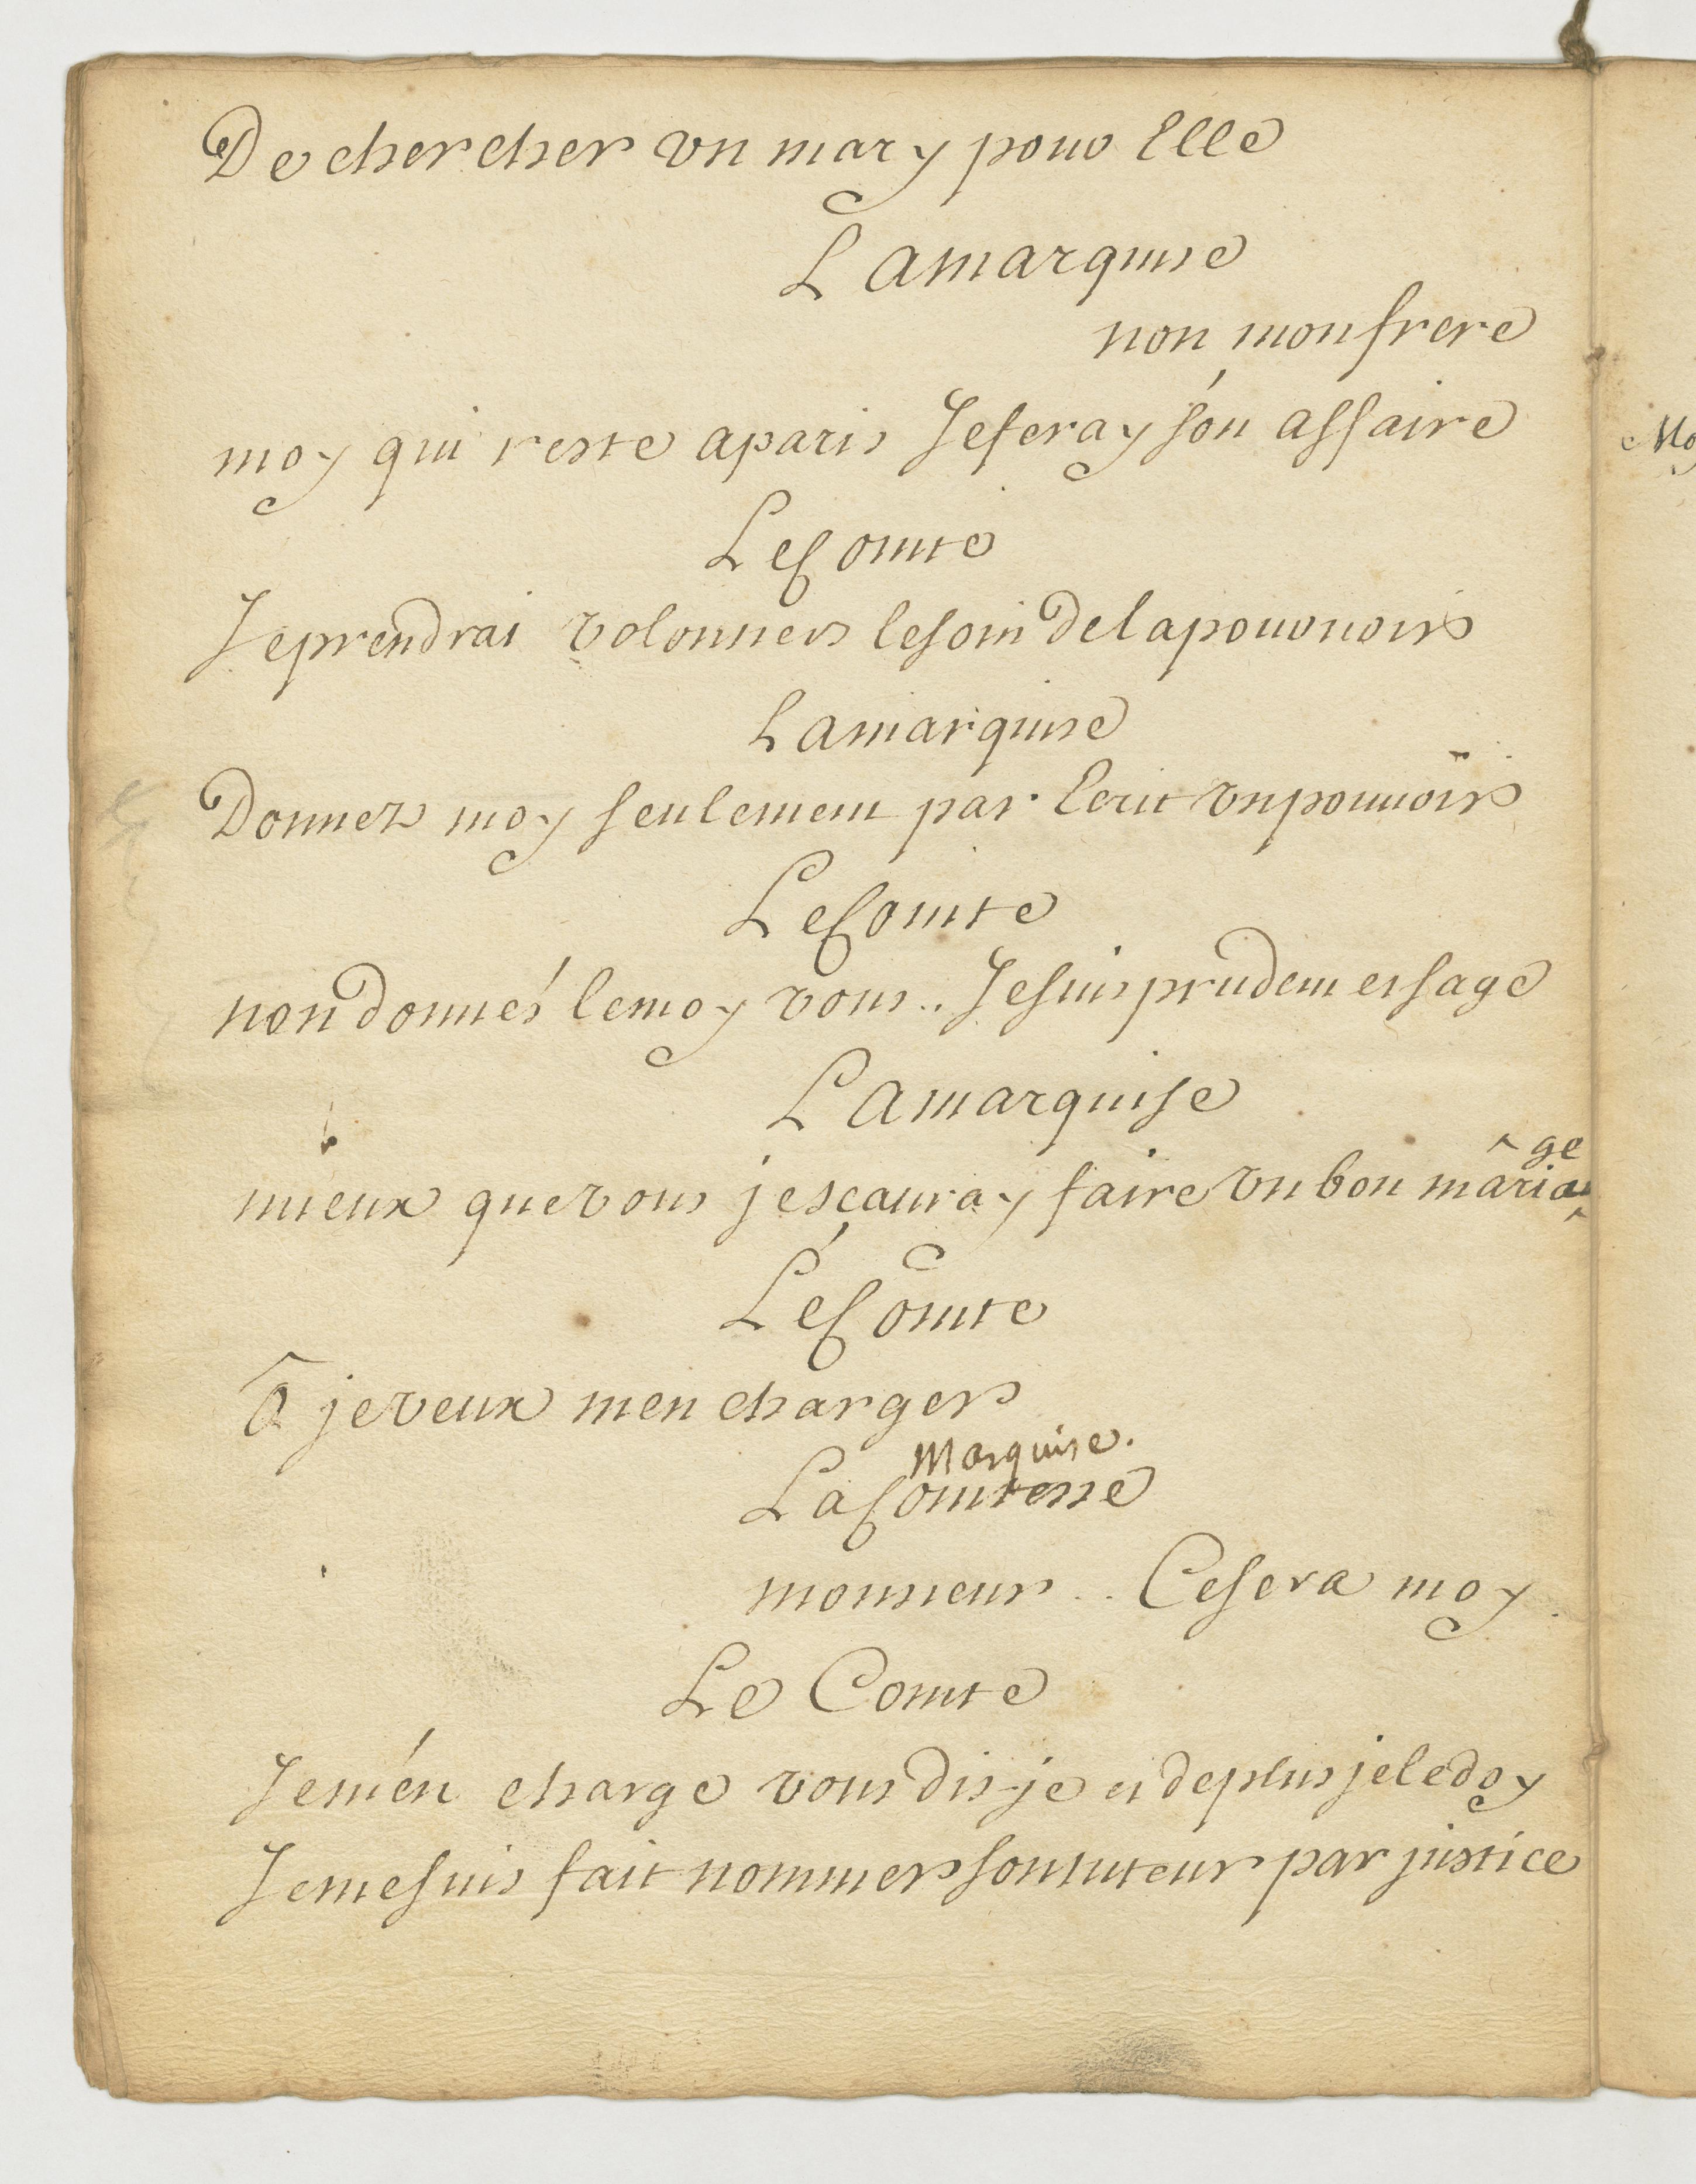 De chercher vn mary pour Elle
La marquise
non mon frere
moy qui reste a paris Je feray son affaire
Le Comte
Je prendrai volontiers le soin de la pouruoir
La marquise
Donnez moy seulement par Ecrit vn pouuoir
Le Comte
non donnés le moy vous .. Je suis prudent et sage
La marquise
ge
mieux que vous je sçauray faire vn bon maria
Le Comte
ô je veux men charger
Marquise.
La Comtesse
monsieur .. Ce sera moy.
Le Comte
Je m'én charge vous dis-je et de plus je le doy
Je me suis fait nommer son tuteur par justice